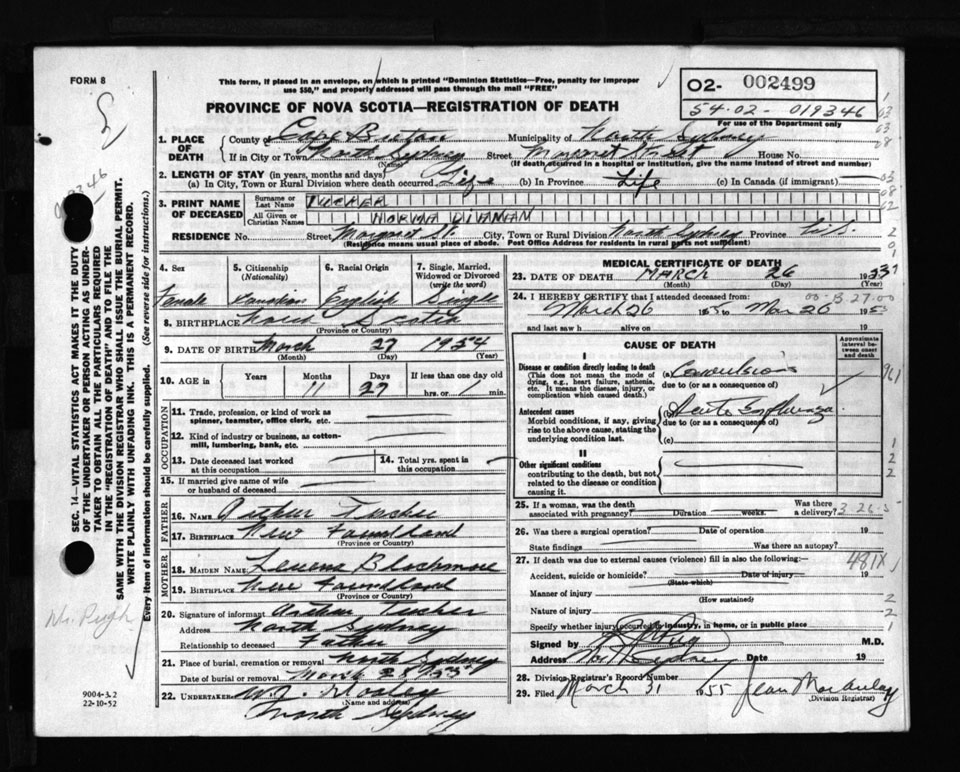 FORM 8
This form, if placed in an envelope, on which is printed "Dominion Statistics—Free, penalty for improper
use $50," and properly addressed will pass through the mail "FREE"
PROVINCE OF NOVA SCOTIA—REGISTRATION OF DEATH
O2- 002499
54-02-019346
For use of the Department only
1. PLACE OF DEATH
County of Cape Breton Municipality of North Sydney
If in City or Town North Sydney Street Margaret St House No.
(Name) (If death occurred in a hospital or institution, give the name instead of street and number)
2. LENGTH OF STAY (in years, months and days)
(a) In City, Town or Rural Division where death occurred Life (b) In Province Life (c) In Canada (if immigrant)
3. PRINT NAME OF DECEASED
Surname or Last Name TUCKER
All Given or Christian Names NORMA
RESIDENCE No. Street Margaret St. City, Town or Rural Division North Sydney Province N.S.
(Residence means usual place of abode. Post Office Address for residents in rural parts not sufficient)
4. Sex Female
5. Citizenship (Nationality) Canadian
6. Racial Origin English
7. Single, Married, Widowed or Divorced (write the word) Single
8. BIRTHPLACE Nova Scotia
(Province or Country)
9. DATE OF BIRTH March 27 1954
(Month) (Day) (Year)
10. AGE in Years Months Days If less than one day old
11 27 hrs. or min.
OCCUPATION
11. Trade, profession, or kind of work as
spinner, teamster, office clerk, etc.
12. Kind of industry or business, as cotton-
mill, lumbering, bank, etc.
13. Date deceased last worked
at this occupation
14. Total yrs. spent in
this occupation
15. If married give name of wife
or husband of deceased
FATHER
16. NAME Arthur Tucker
17. BIRTHPLACE New Foundland
(Province or Country)
MOTHER
18. MAIDEN NAME Blackmore
19. BIRTHPLACE New Foundland
(Province or Country)
20. Signature of informant Arthur Tucker
Address North Sydney
Relationship to deceased Father
21. Place of burial, cremation or removal North Sydney
Date of burial or removal March 28, 1955
22. UNDERTAKER
(Name and address)
North Sydney
MEDICAL CERTIFICATE OF DEATH
23. DATE OF DEATH MARCH 26
(Month) (Day) (Year)
24. I HEREBY CERTIFY that I attended deceased from:
March 26 to Mar 26 1955
and last saw h alive on 19
CAUSE OF DEATH
Approximate interval between onset and death
I
Disease or condition directly leading to death
(This does not mean the mode of
dying, e.g., heart failure, asthenia,
etc. It means the disease, injury, or
complication which caused death.)
(a) Convulsions
due to (or as a consequence of)
Antecedent causes
Morbid conditions, if any, giving
rise to the above cause, stating the
underlying condition last.
(b) Acute Influenza
due to (or as a consequence of)
(c)
II
Other significant conditions
contributing to the death, but not
related to the disease or condition
causing it.
25. If a woman, was the death
associated with pregnancy? Duration weeks. Was there a delivery?
26. Was there a surgical operation? Date of operation 19
State findings Was there an autopsy?
27. If death was due to external causes (violence) fill in also the following:—
481X
Accident, suicide or homicide? Date of injury 19
(State which)
Manner of injury
(How sustained)
Nature of injury
Specify whether injury occurred in industry, in home, or in public place
Signed by M.D.
Address North Sydney Date 19
28. Division Registrar's Record Number
29. Filed March 31 1955 Jean MacAulay
(Division Registrar)
SEC. 14—VITAL STATISTICS ACT MAKES IT THE DUTY
OF THE UNDERTAKER OR PERSON ACTING AS UNDER-
TAKER TO OBTAIN ALL THE PARTICULARS REQUIRED
IN THE "REGISTRATION OF DEATH" AND TO FILE THE
SAME WITH THE DIVISION REGISTRAR WHO SHALL ISSUE THE BURIAL PERMIT.
WRITE PLAINLY WITH UNFADING INK. THIS IS A PERMANENT RECORD.
Every item of information should be carefully supplied. (See reverse side for instructions.)
9004-3.2
22-10-52